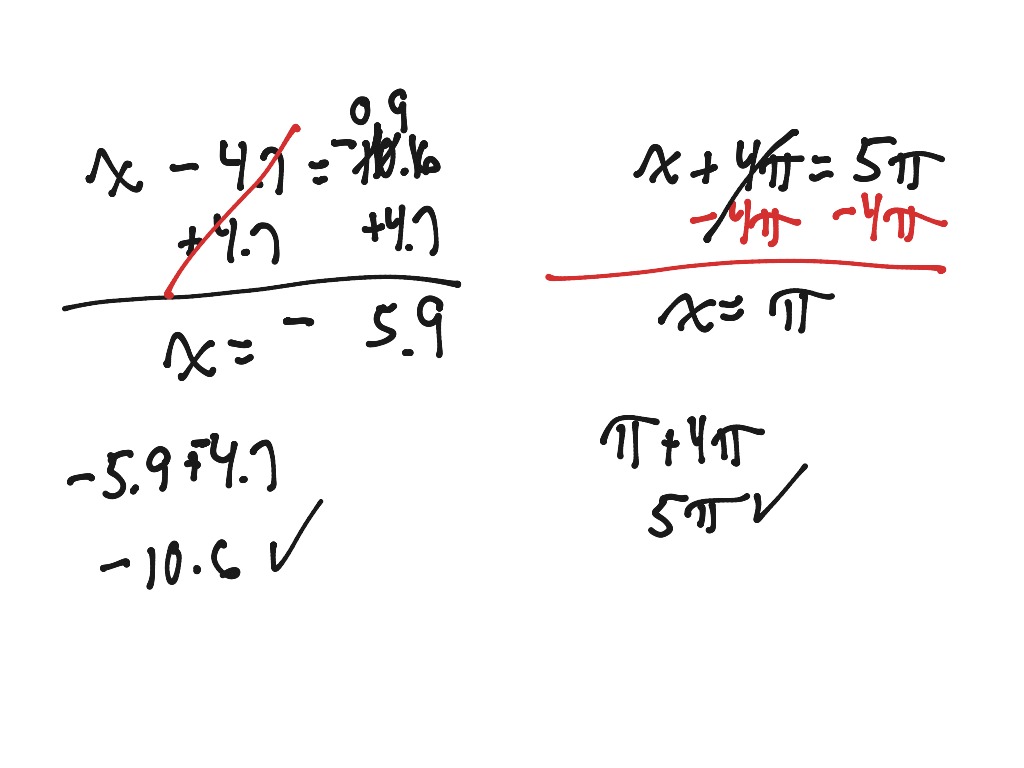 0 9
x - 4.7 = -10.6
+4.7 +4.7
x = - 5.9
-5.9 + -4.7
-10.6 ✓
x + 4π = 5π
-4π -4π
x = π
π + 4π
5π ✓